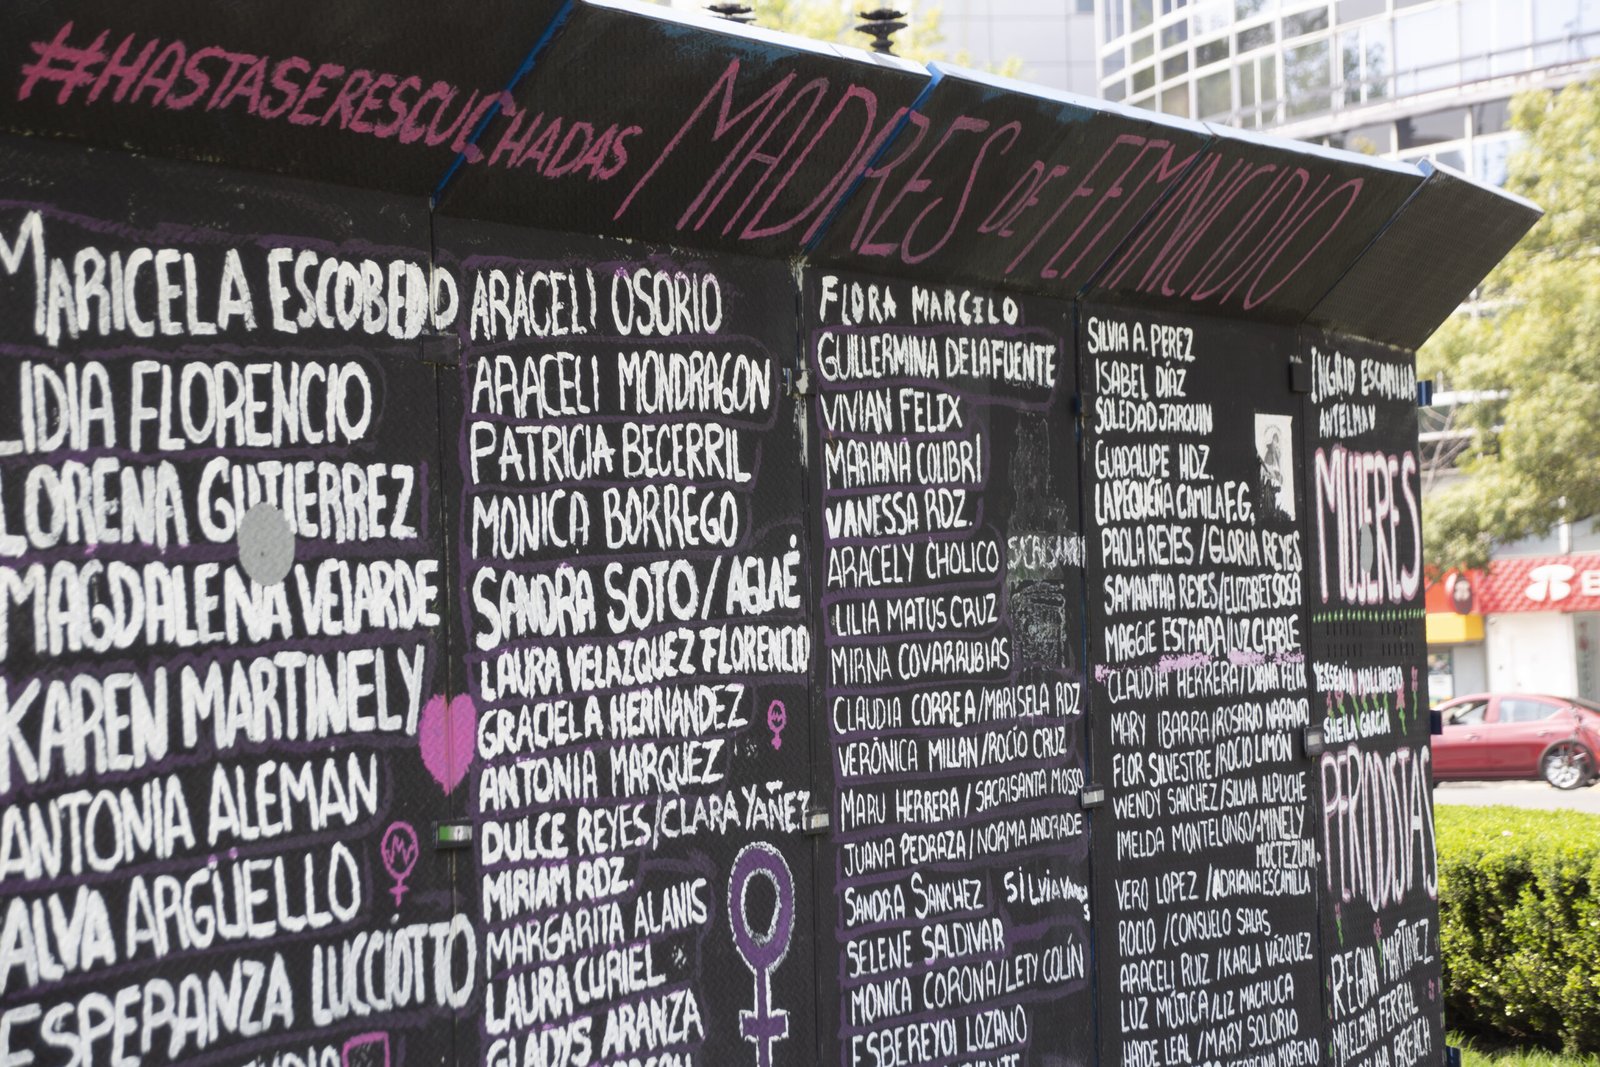 #HASTASERESCUCHADAS
MADRES DE FEMINICIDIO
MARICELA ESCOBEDO
LIDIA FLORENCIO
LORENA GUTIERREZ
MAGDALENA VELARDE
KAREN MARTINELY
ANTONIA ALEMÁN
ALVA ARGÜELLO
ESPERANZA LUCCIOTTO
ARACELI OSORIO
ARACELI MONDRAGON
PATRICIA BECERRIL
MONICA BORREGO
SANDRA SOTO / AGLAÉ
LAURA VELAZQUEZ FLORENCIO
GRACIELA HERNANDEZ
ANTONIA MARQUEZ
DULCE REYES/CLARA YAÑEZ
MIRIAM RDZ.
MARGARITA ALANIS
LAURA CURIEL
GLADYS ARANZA
FLORA MARCILO
GUILLERMINA DE LA FUENTE
VIVIAN FÉLIX
MARIANA COLIBRÍ
VANESSA RDZ.
ARACELY CHOLICO
LILIA MATUS CRUZ
MIRNA COVARRUBIAS
CLAUDIA CORREA/MARISELA RDZ
VERÓNICA MILLAN/ROCÍO CRUZ
MARU HERRERA / SACRISANTA MOSSO
JUANA PEDRAZA / NORMA ANDRADE
SANDRA SANCHEZ SILVIA VARGAS
SELENE SALDIVAR
MONICA CORONA/LETY COLÍN
ESBEREYDI LOZANO
SILVIA A. PEREZ
ISABEL DÍAZ
SOLEDAD JARQUIN
GUADALUPE HDZ.
LA PEQUEÑA CAMILA F.G.
PAOLA REYES / GLORIA REYES
SAMANTHA REYES/ELIZABET SOSA
MAGGIE ESTRADA/LUZ CHABLE
CLAUDIA HERRERA/DIANA FELIX
MARY IBARRA/ROSARIO NARANJO
FLOR SILVESTRE/ROCÍO LIMÓN
WENDY SÁNCHEZ/SILVIA ALPUCHE
IMELDA MONTELONGO/MINELY
MOCTEZUMA
VERO LOPEZ / ADRIANA ESCAMILLA
ROCIO / CONSUELO SALAS
ARACELI RUIZ / KARLA VÁZQUEZ
LUZ MÚJICA/LIZ MACHUCA
HAYDE LEAL / MARY SOLORIO
INGRID ESCAMILLA
MUJERES
YESSENIA MOLLINEDO
SHEILA GARCÍA
PERIODISTAS
REGINA MARTÍNEZ
MA ELENA FERRAL
MIROSLAVA BREACH